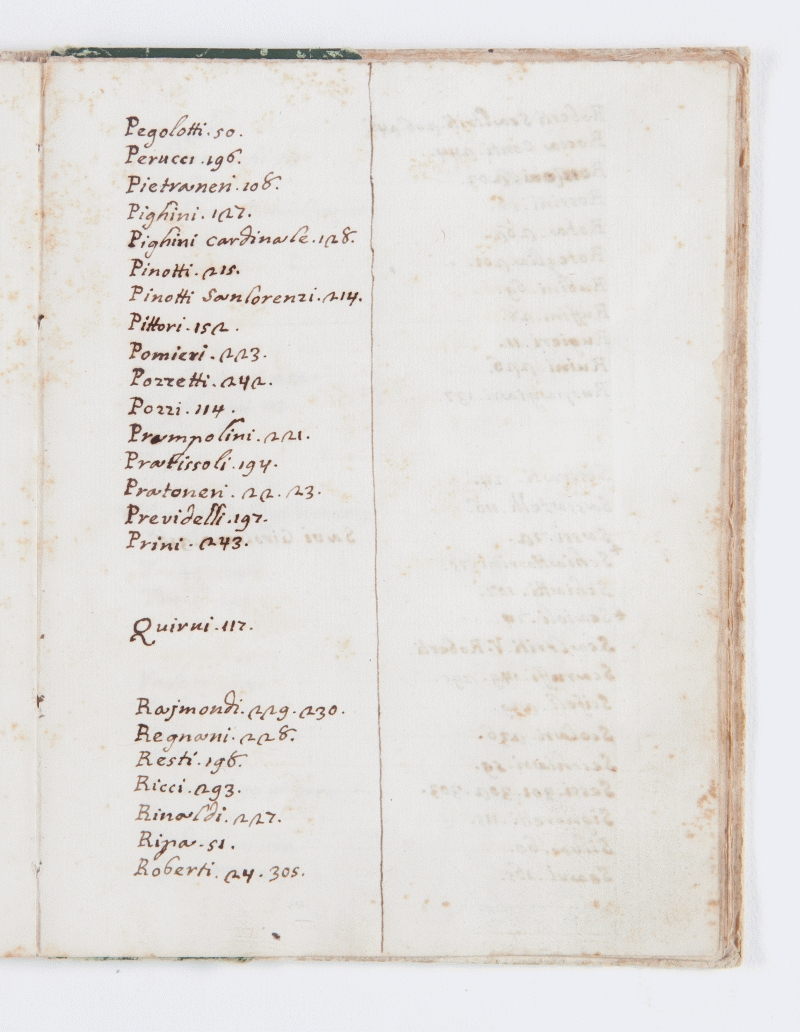 Pegolotti. 50.
Perucci. 196.
Pietraneri. 108.
Pighini. 127.
Pighini cardinale. 128.
Pinotti. 215.
Pinotti Sanlorenzi. 214.
Pittori. 152.
Pomieri. 223.
Pozzetti. 242.
Pozzi. 114.
Prampolini. 221.
Pratissoli. 194.
Pratoneri. 22. 23.
Previdelli. 197.
Prini. 243.
Quirni. 117.
Rajmondi. 229. 230.
Regnani. 228.
Resti. 196.
Ricci. 293.
Rinaldi. 227.
Ripa. 51.
Roberti. 24. 305.